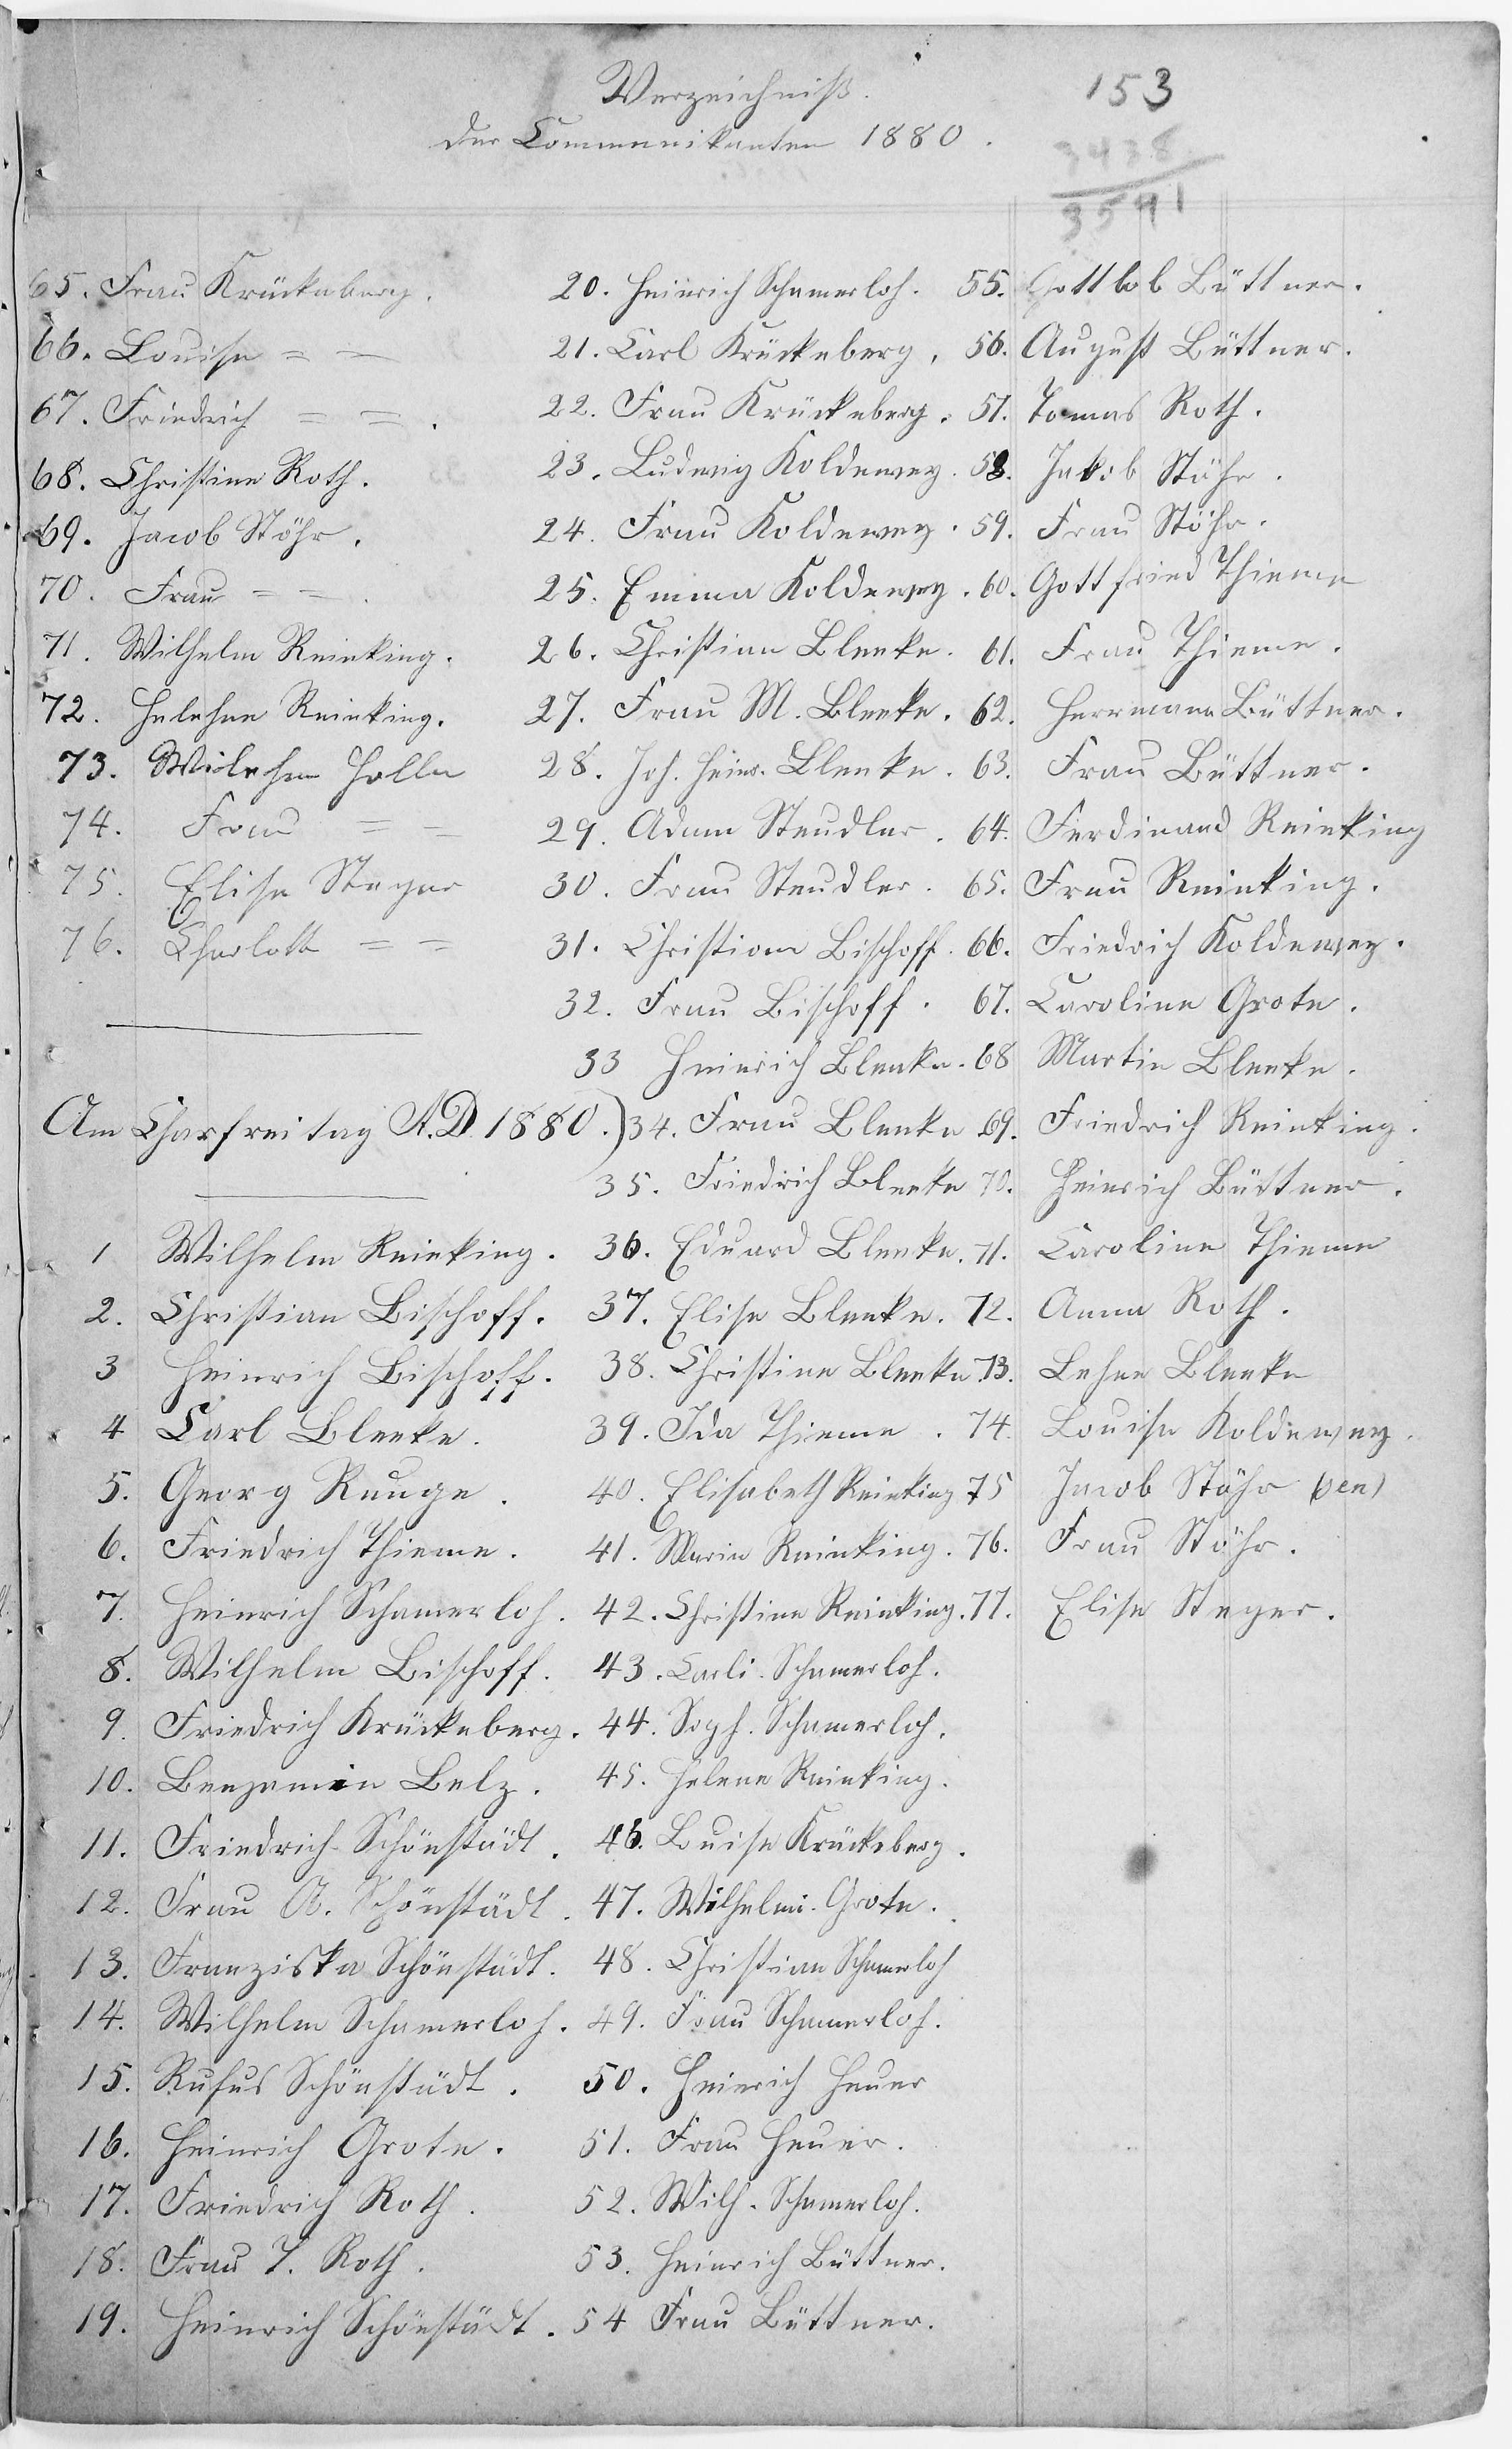 Verzeichniß.
der Communikanten 1880.
153
3438
3591
65. Frau Krückeberg.
66. Louise = =
67. Friedrich = =.
68. Christine Roth.
69. Jacob Stöhr.
70. Frau = =.
71. Wilhelm Reinking.
72. Helehne Reinking.
73. Wilehm Holle
74. Frau = =
75. Elise Steger
76. Charlotte = =
Am Charfreitag A.D. 1880.)
1 Wilhelm Reinking.
2. Christian Bischoff.
3 Heinrich Bischoff.
4 Carl Bleeke.
5. Georg Runge.
6. Friedrich Thieme.
7. Heinrich Schamerloh.
8. Wilhelm Bischoff.
9. Friedrich Krückeberg.
10. Benjamin Belz.
11. Friedrich Schönstädt.
12. Frau A. Schönstädt.
13. Franziska Schönstädt.
14. Wilhelm Schamerloh.
15. Rufus Schönstädt.
16. Heinrich Grote.
17. Friedrich Roth.
18. Frau T. Roth.
19. Heinrich Schönstädt.
20. Heinrich Schamerloh.
21. Carl Krückeberg.
22. Frau Krückeberg.
23. Ludwig Koldewey.
24. Frau Koldewey.
25. Emma Koldewey.
26. Christian Bleeke.
27. Frau M. Bleeke.
28. Joh. Heinr. Bleeke.
29. Adam Steudler.
30. Frau Steudler.
31. Christian Bischoff.
32. Frau Bischoff.
33 Heinrich Bleeke.
34. Frau Bleeke
35. Friedrich Bleeke
36. Eduard Bleeke.
37. Elise Bleeke.
38. Christine Bleeke
39. Ida Thieme.
40. Elisabeth Reinking
41. Marie Reinking.
42. Christine Reinking.
43. Carli. Schamerloh.
44. Soph. Schamerloh.
45. Helene Reinking.
46. Louise Krückeberg.
47. Wilhelmi. Grote.
48. Christian Schamerloh
49. Frau Schamerloh.
50. Heinrich Heuer
51. Frau Heuer.
52. Wilh. Schamerloh.
53. Heinrich Büttner.
54 Frau Büttner.
55. Gottlob Büttner.
56. August Büttner.
57. Tomas Roth.
58. Jakob Stöhr.
59. Frau Stöhr.
60. Gottfried Thieme
61. Frau Thieme.
62. Herrmann Büttner.
63. Frau Büttner.
64. Ferdinand Reinking
65. Frau Reinking.
66. Friedrich Koldewey.
67. Caroline Grote.
68 Martin Bleeke.
69. Friedrich Reinking.
70. Heinrich Büttner.
71. Caroline Thieme
72. Anna Roth.
73. Lehne Bleeke
74. Louise Koldewey.
75 Jacob Stöhr sen)
76. Frau Stöhr.
77. Elise Steger.